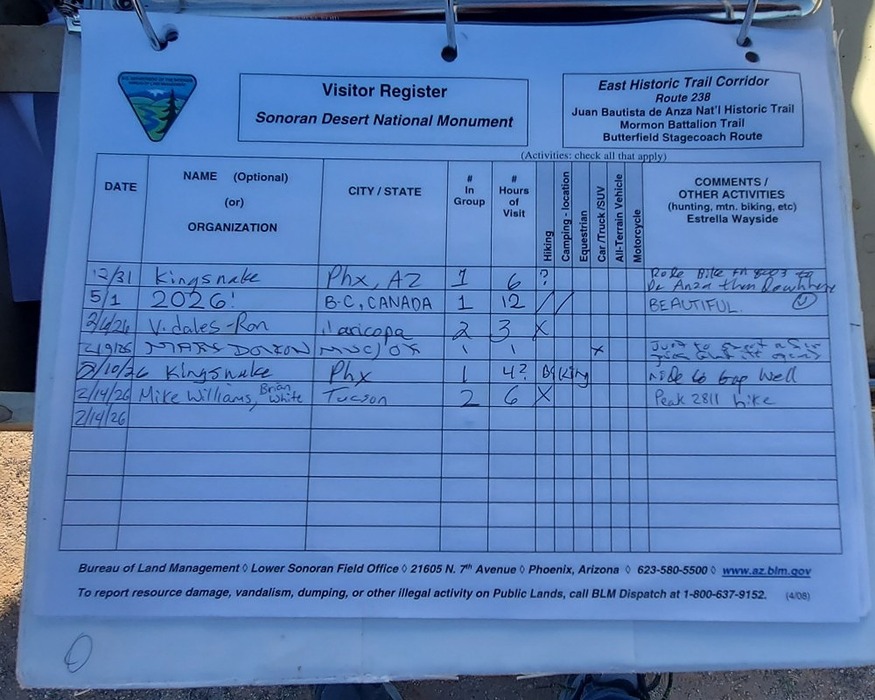 Visitor Register
Sonoran Desert National Monument
East Historic Trail Corridor
Route 238
Juan Bautista de Anza Nat'l Historic Trail
Mormon Battalion Trail
Butterfield Stagecoach Route
(Activities: check all that apply)
DATE
NAME (Optional)
(or)
ORGANIZATION
CITY / STATE
#
In
Group
#
Hours
of
Visit
Hiking
Camping - location
Equestrian
Car /Truck /SUV
All-Terrain Vehicle
Motorcycle
COMMENTS /
OTHER ACTIVITIES
(hunting, mtn. biking, etc)
Estrella Wayside
12/31 Kingsnake Phx, AZ 1 6 ? Ride Bike
De Anza then
5/1 2026! B.C, CANADA 1 12 / / BEAUTIFUL.
2/6/26 Vidales-Ron Maricopa 2 3 X
1 1 X Just to
2/10/26 Kingsnake Phx 1 4? Biking Ride to Gap Well
2/14/26 Mike Williams, Brian White Tucson 2 6 X Peak 2811 hike
2/14/26
Bureau of Land Management ◊ Lower Sonoran Field Office ◊ 21605 N. 7th Avenue ◊ Phoenix, Arizona ◊ 623-580-5500 ◊ www.az.blm.gov
To report resource damage, vandalism, dumping, or other illegal activity on Public Lands, call BLM Dispatch at 1-800-637-9152. (4/08)